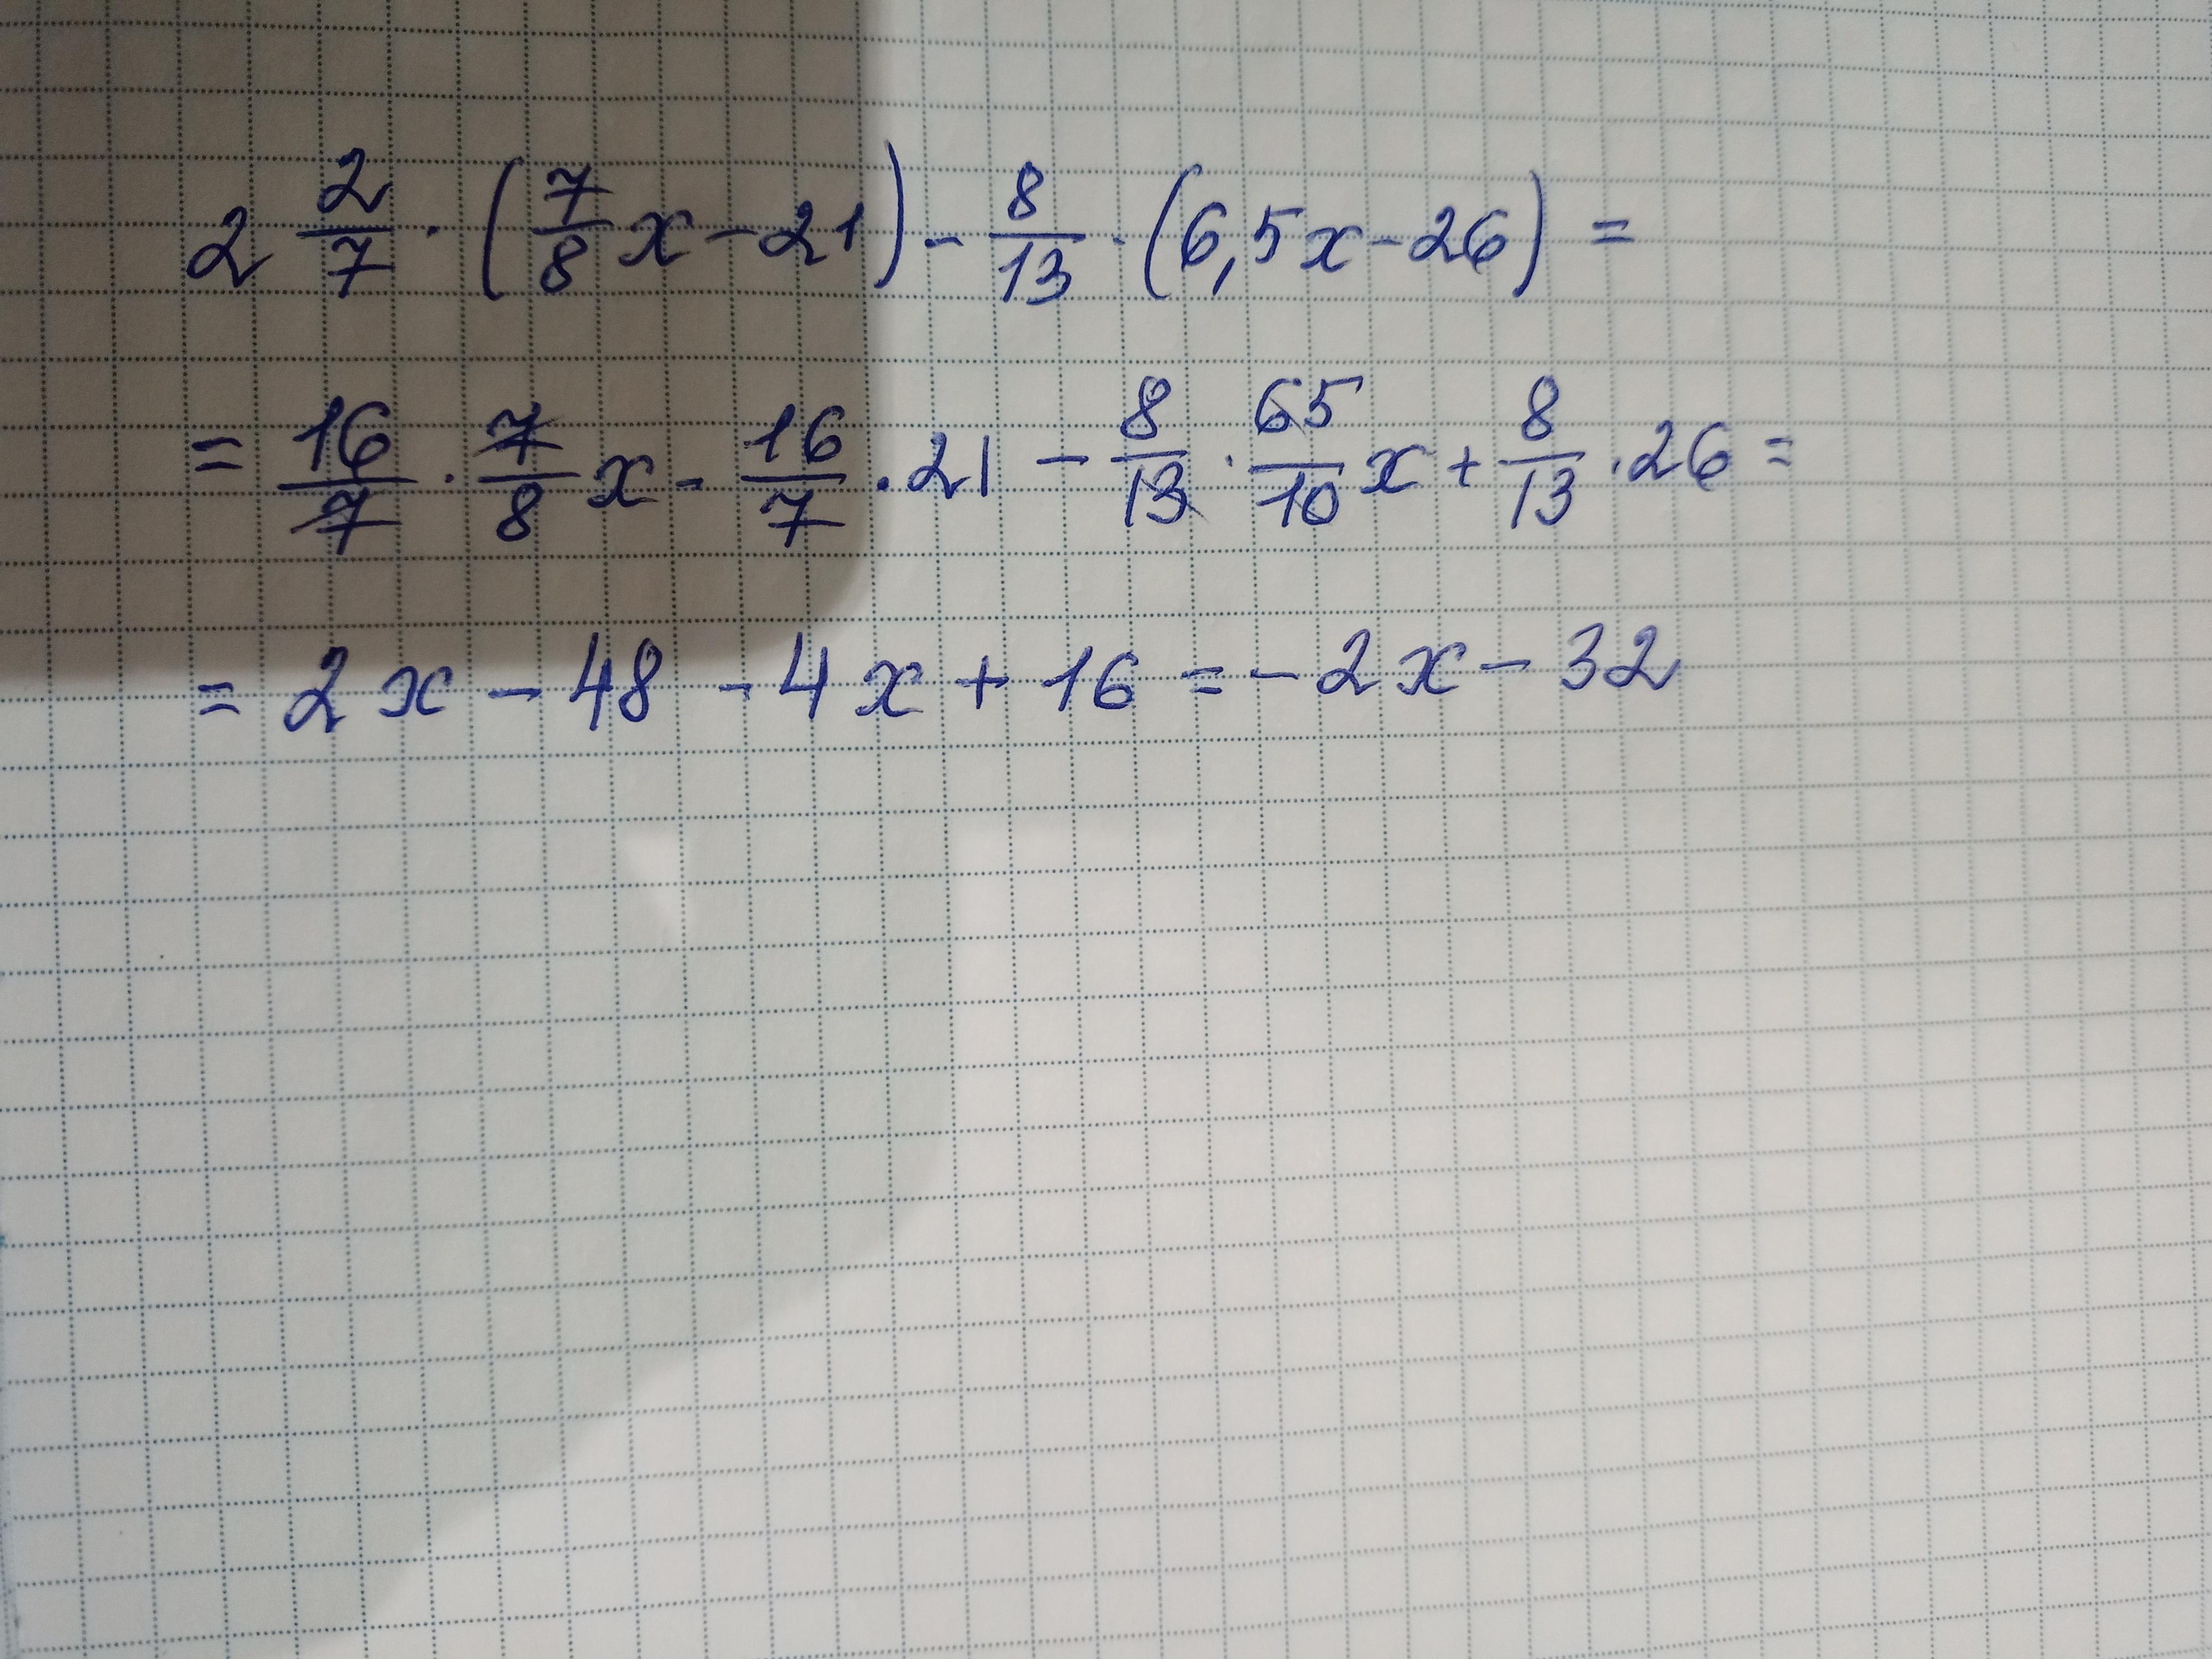 2 2/7 · (7/8 x - 21) - 8/13 · (6,5x - 26) =
= 16/7 · 7/8 x - 16/7 · 21 - 8/13 · 65/10 x + 8/13 · 26 =
= 2x - 48 - 4x + 16 = - 2x - 32